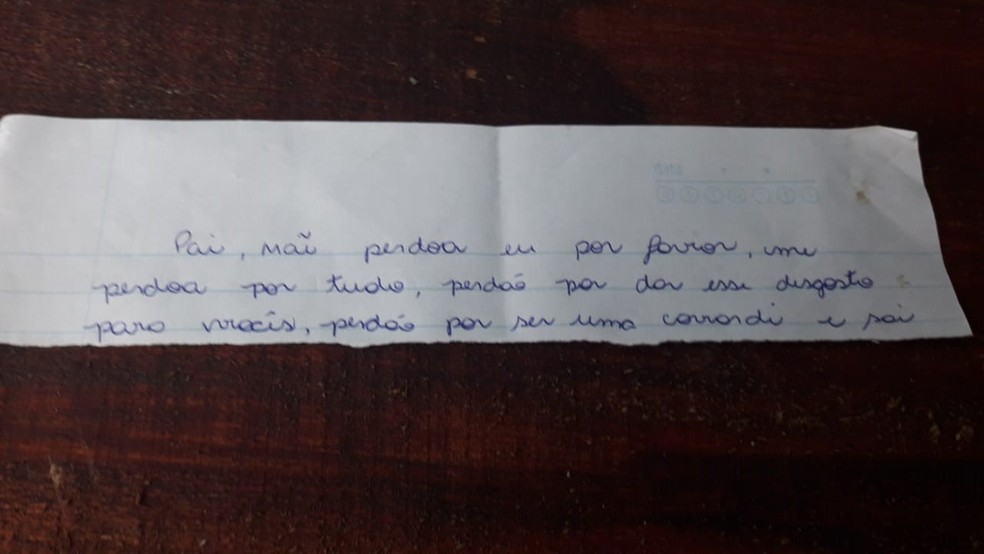 Pai, mãe perdoa eu por favor, me
perdoa por tudo, perdão por dar esse desgosto
para vocês, perdão por ser uma covarde e sai